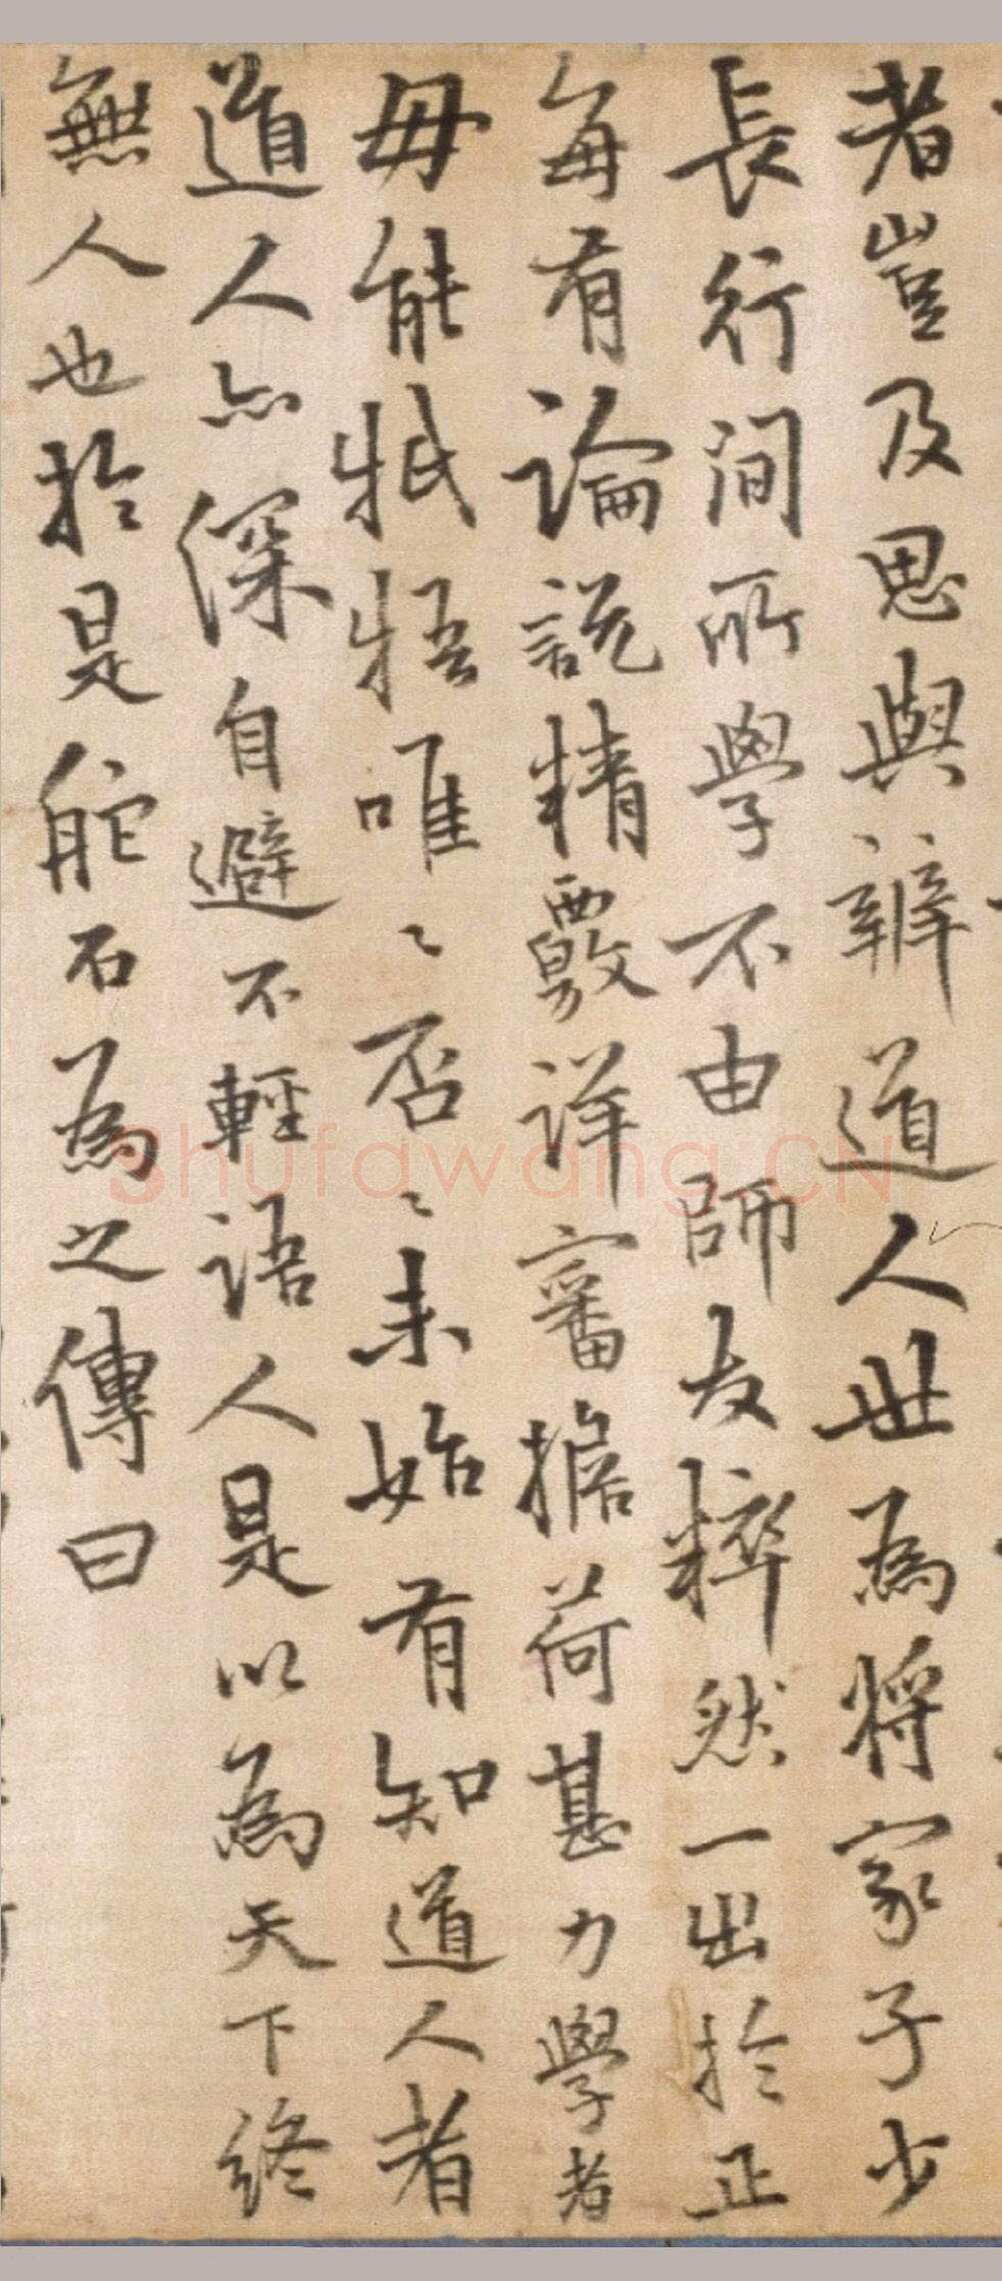 者豈及思與辨道人世為將家子少
長行間所學不由師友粹然一出於正
每有論說精覈詳審擔荷甚力學者
毋能牴牾唯〻否〻未始有知道人者
道人亦深自避不輕語人是以為天下終
無人也於是舵石為之傳曰
shufawang.CN